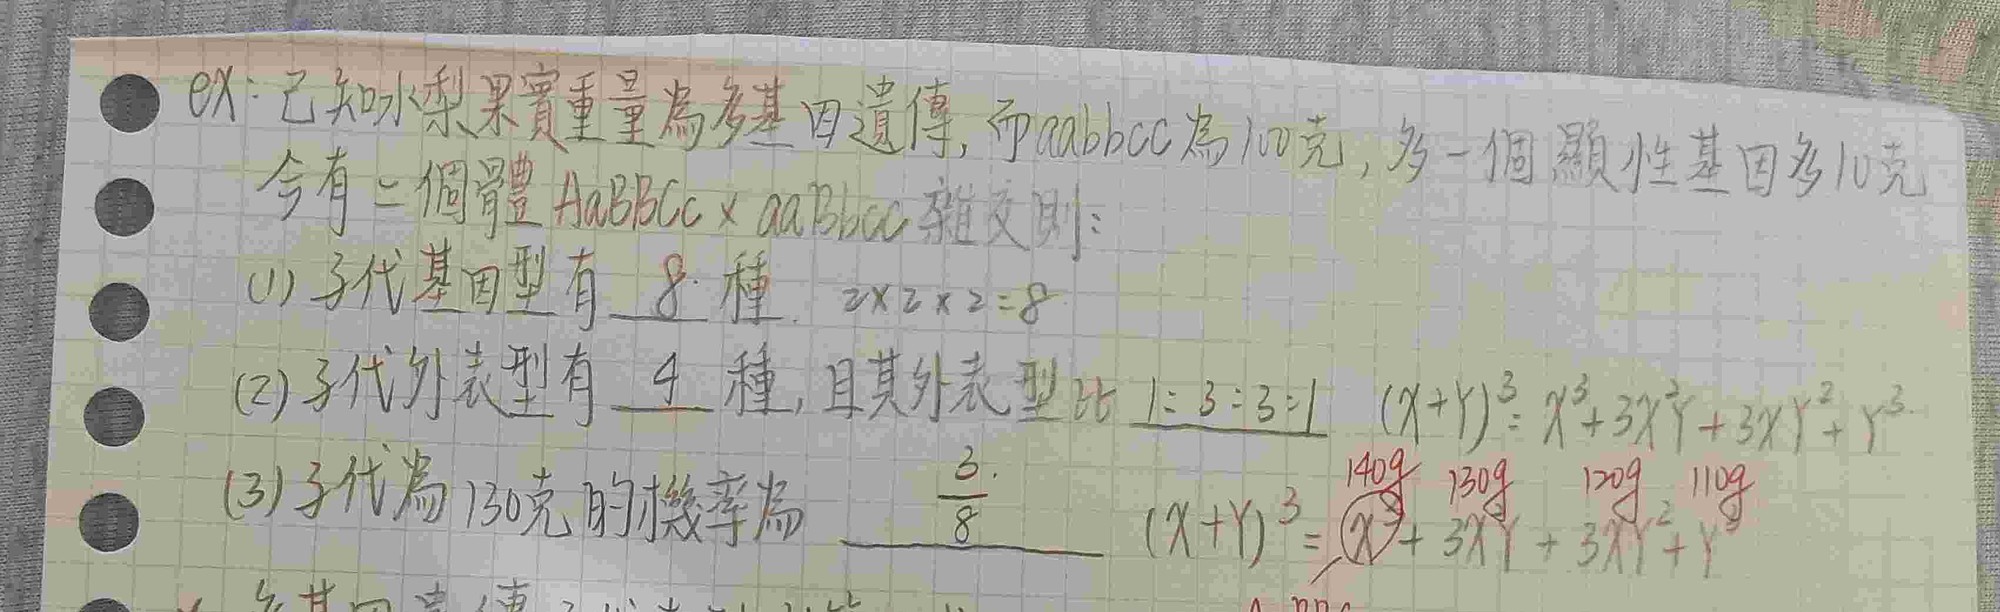 ex：已知水梨果實重量為多基因遺傳，而aabbcc為100克，多一個顯性基因多10克
今有二個體 AaBBCc x aaBbcc 雜交則：
(1) 子代基因型有 8 種. 2×2×2=8
(2) 子代外表型有 4 種，且其外表型比 1：3：3：1 (X+Y)³= X³+3X²Y+3XY²+Y³
140g 130g 120g 110g
(3) 子代為130克的機率為 3/8 (X+Y)³= X³+3XY+3XY²+Y³